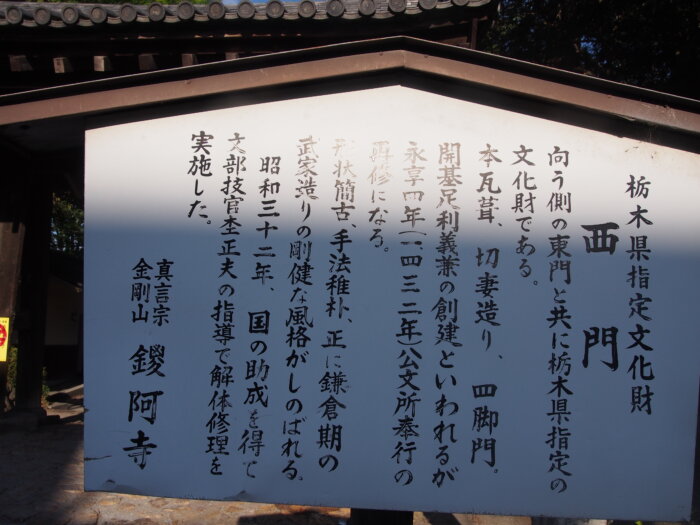 栃木県指定文化財
西門
向う側の東門と共に栃木県指定の
文化財である。
本瓦葺、切妻造り、四脚門。
開基足利義兼の創建といわれるが
永享四年(一四三二年)公文所奉行の
再修になる。
形状簡古、手法稚朴、正に鎌倉期の
武家造りの剛健な風格がしのばれる。
昭和三十二年、国の助成を得て
文部技官杢正夫の指導で解体修理を
実施した。
真言宗
金剛山
鑁阿寺